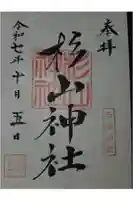 奉拝
杉山神社
令和七年十月五日